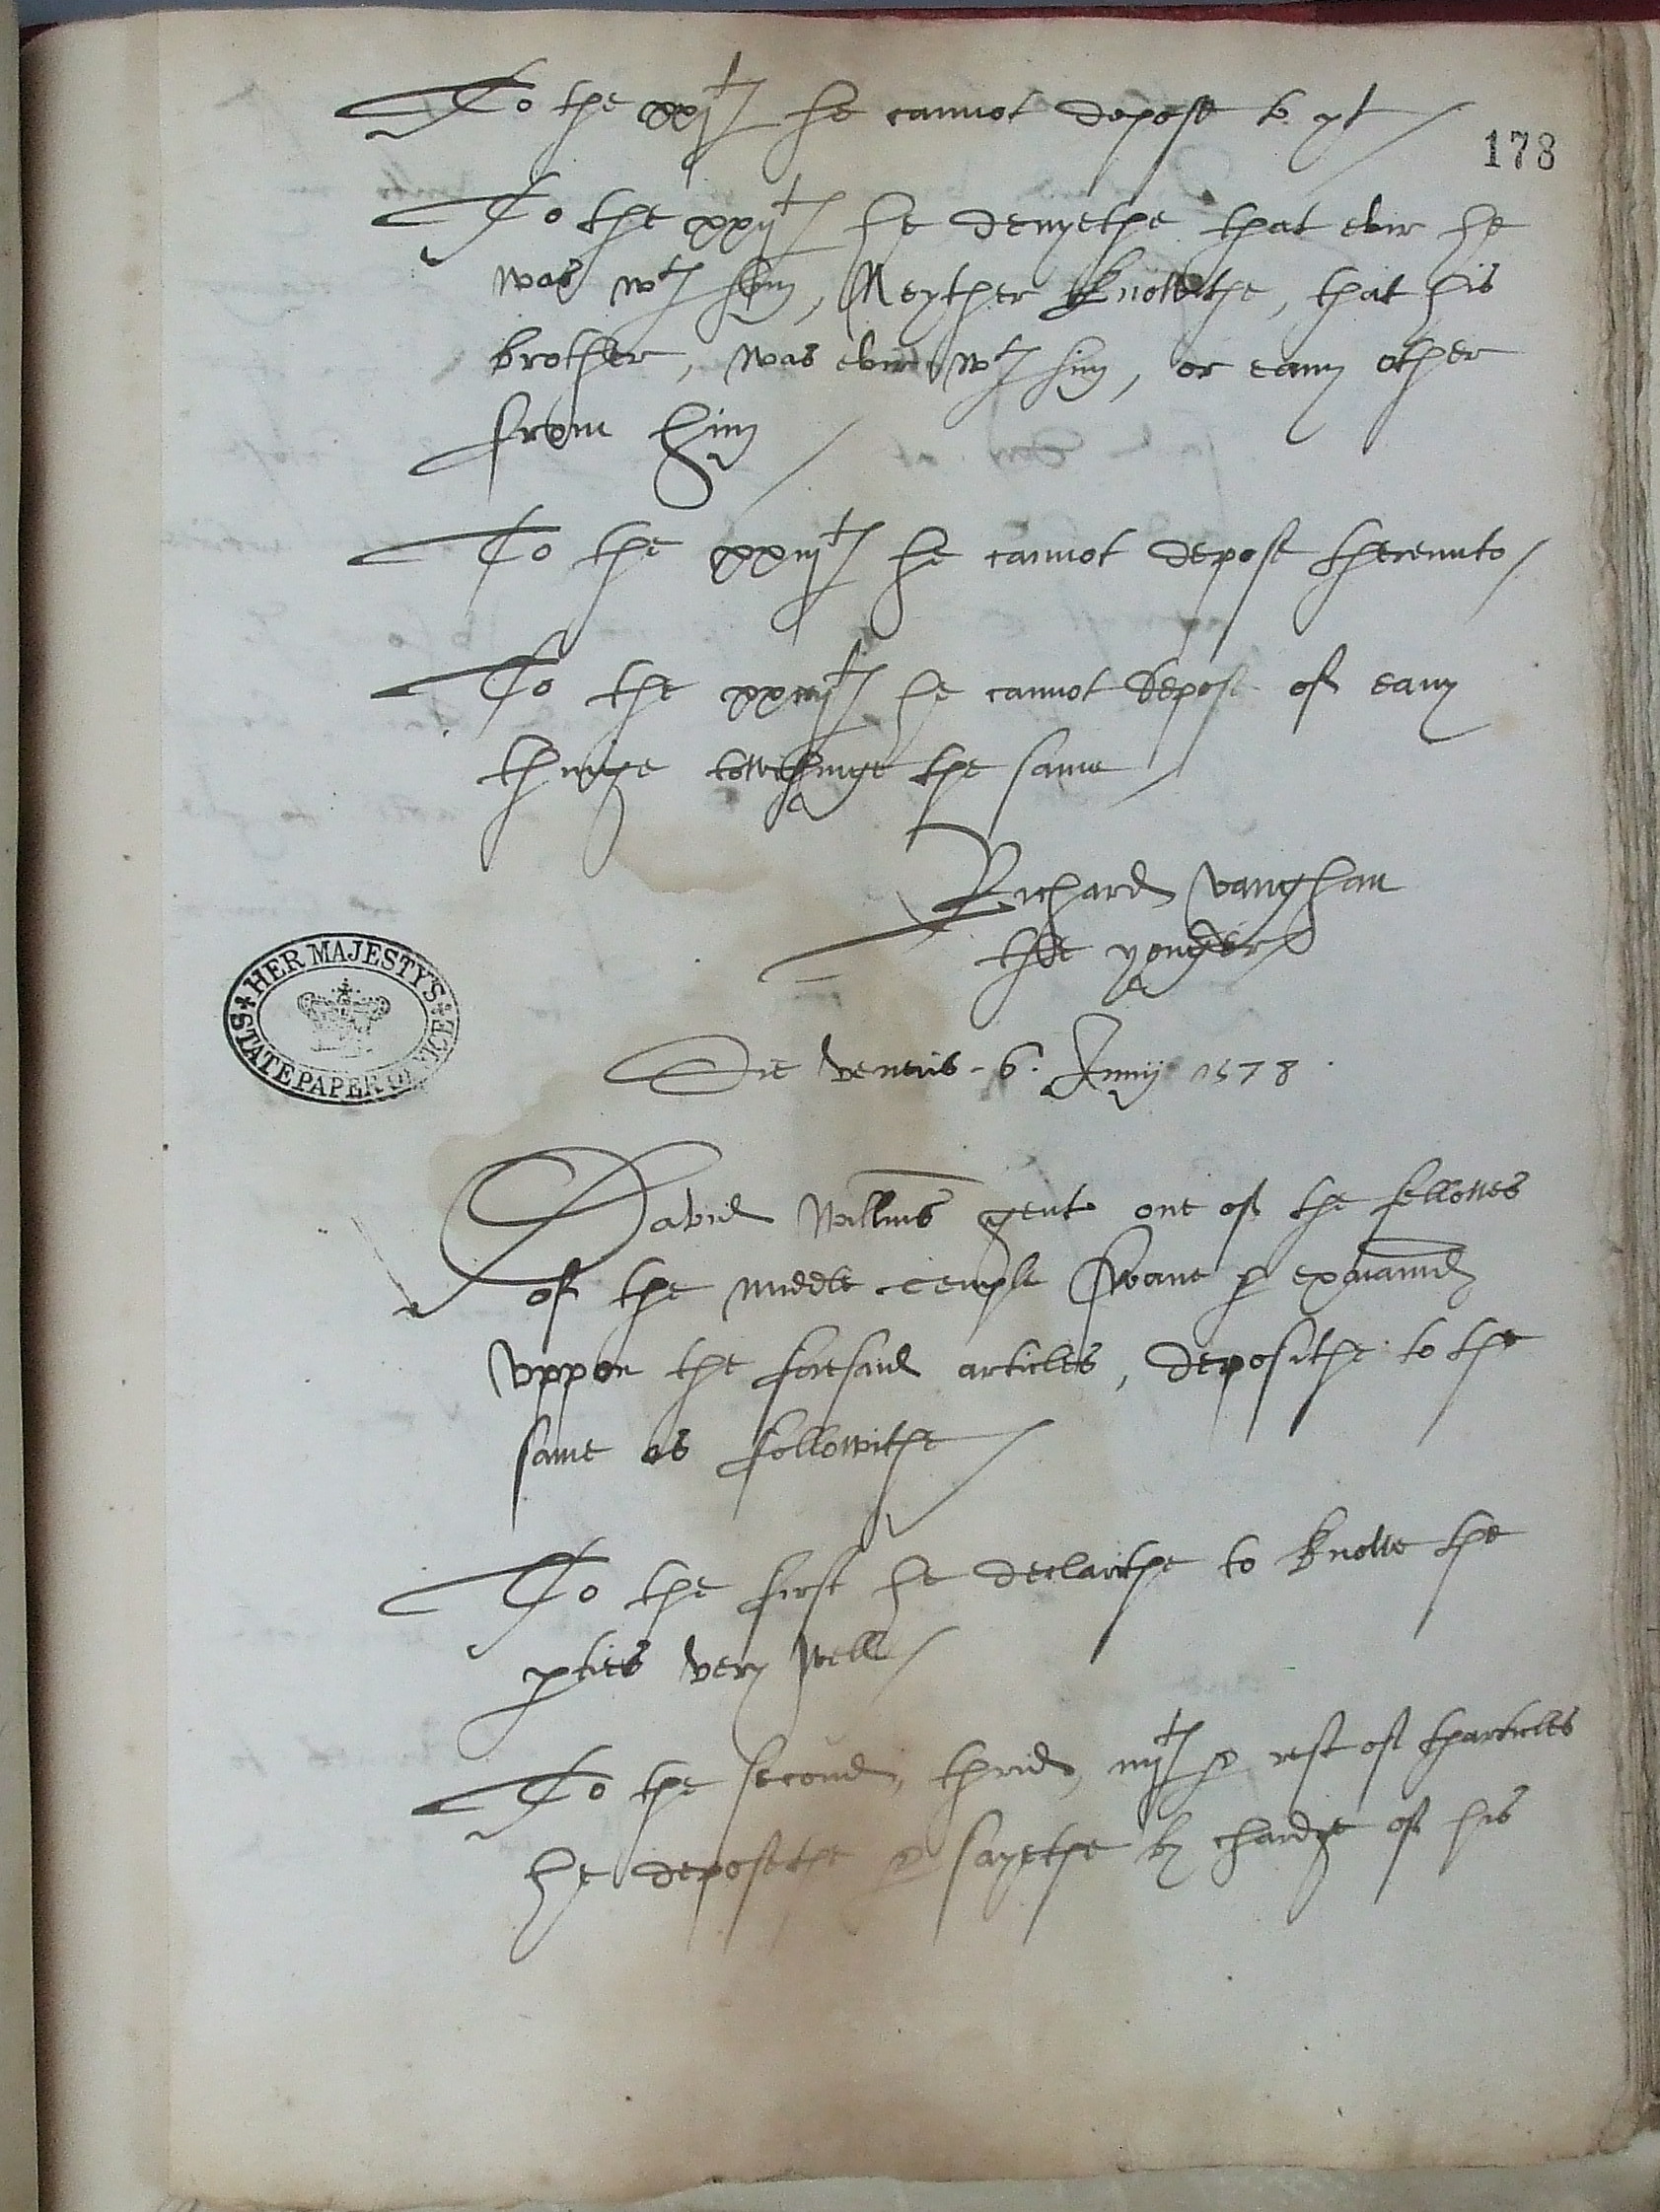 To the xxjth he cannot depose to yt
178
To the xxijth he denyethe that evir he
was wth him, Neyther knowethe, that his
brother, was evir wth him, or eany other
from him
To the xxiijth he cannot depose therunto
To the xxiiijth he cannot depose of eany
thinge towchinge the same
Richard Vaughan
the yonger
HER MAJESTY'S
STATE PAPER OFFICE
Die veneris 6. Junij 1578
David Willms gent one of the fellowes
of the middle temple sworne & examined
uppon the foresaid articles, deposithe to the
same as followithe
To the first he declarithe to knowe the
pties very well
To the second, thrid, iiijth & rest of tharticles
he deposethe & sayethe by chardge of his